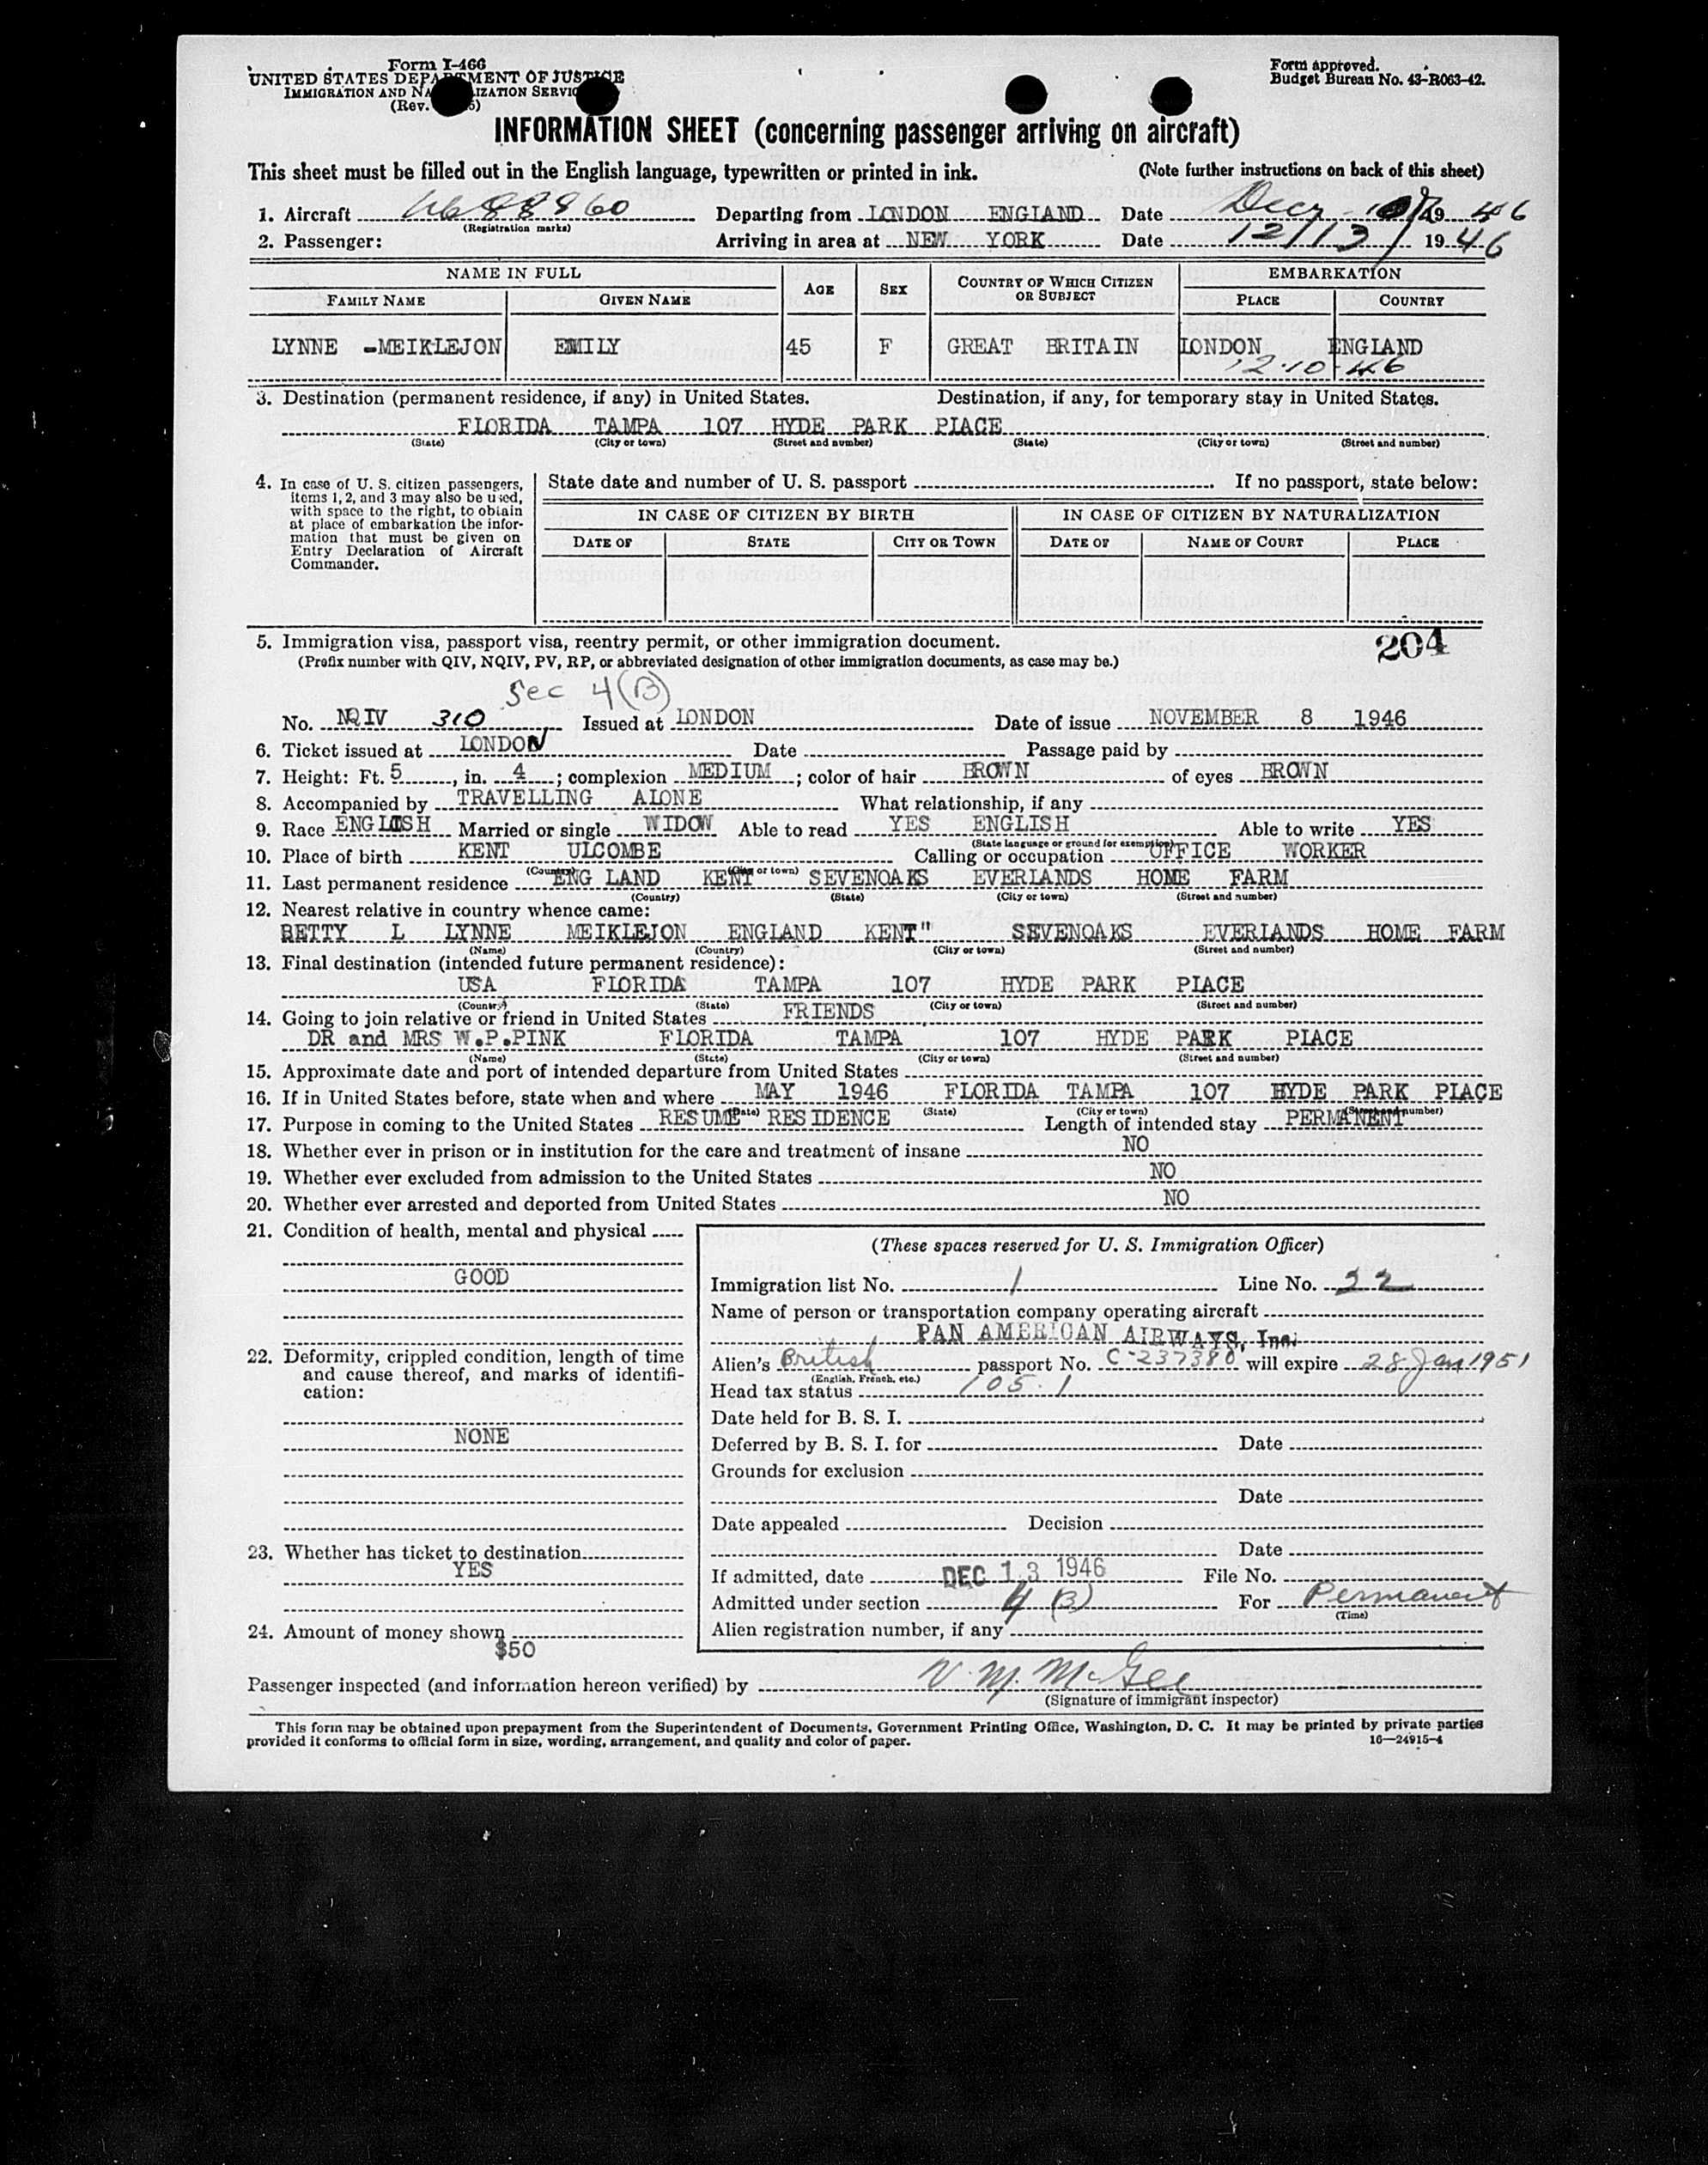 Form I-466
UNITED STATES DEPARTMENT OF JUSTICE
IMMIGRATION AND NATURALIZATION SERVICE
(Rev.
Form approved.
Budget Bureau No. 43-R063-42.
INFORMATION SHEET (concerning passenger arriving on aircraft)
This sheet must be filled out in the English language, typewritten or printed in ink. (Note further instructions on back of this sheet)
1. Aircraft Departing from LONDON ENGLAND Date Dec 19 46
(Registration marks)
2. Passenger: Arriving in area at NEW YORK Date 12/13/ 19 46
NAME IN FULL AGE SEX COUNTRY OF WHICH CITIZEN OR SUBJECT EMBARKATION
FAMILY NAME GIVEN NAME PLACE COUNTRY
LYNNE -MEIKLEJON EMILY 45 F GREAT BRITAIN LONDON ENGLAND
12-10-46
3. Destination (permanent residence, if any) in United States. Destination, if any, for temporary stay in United States.
FLORIDA TAMPA 107 HYDE PARK PLACE
(State) (City or town) (Street and number) (State) (City or town) (Street and number)
4. In case of U. S. citizen passengers, items 1, 2, and 3 may also be used, with space to the right, to obtain at place of embarkation the information that must be given on Entry Declaration of Aircraft Commander.
State date and number of U. S. passport If no passport, state below:
IN CASE OF CITIZEN BY BIRTH IN CASE OF CITIZEN BY NATURALIZATION
DATE OF STATE CITY OR TOWN DATE OF NAME OF COURT PLACE
5. Immigration visa, passport visa, reentry permit, or other immigration document. 204
(Prefix number with QIV, NQIV, PV, RP, or abbreviated designation of other immigration documents, as case may be.)
Sec 4(B)
No. NQIV 310 Issued at LONDON Date of issue NOVEMBER 8 1946
6. Ticket issued at LONDON Date Passage paid by
7. Height: Ft. 5, in. 4; complexion MEDIUM; color of hair BROWN of eyes BROWN
8. Accompanied by TRAVELLING ALONE What relationship, if any
9. Race ENGLISH Married or single WIDOW Able to read YES ENGLISH Able to write YES
(State language or ground for exemption)
10. Place of birth KENT ULCOMBE Calling or occupation OFFICE WORKER
(Country) (City or town)
11. Last permanent residence ENG LAND KENT SEVENOAKS EVERLANDS HOME FARM
(Country) (State) (City or town) (Street and number)
12. Nearest relative in country whence came:
BETTY L LYNNE MEIKLEJON ENGLAND KENT" SEVENOAKS EVERLANDS HOME FARM
(Name) (Country) (City or town) (Street and number)
13. Final destination (intended future permanent residence):
USA FLORIDA TAMPA 107 HYDE PARK PLACE
(Country) (State) (City or town) (Street and number)
14. Going to join relative or friend in United States FRIENDS
DR and MRS W.P.PINK FLORIDA TAMPA 107 HYDE PARK PLACE
(Name) (State) (City or town) (Street and number)
15. Approximate date and port of intended departure from United States
16. If in United States before, state when and where MAY 1946 FLORIDA TAMPA 107 HYDE PARK PLACE
(Date) (State) (City or town) (Street and number)
17. Purpose in coming to the United States RESUME RESIDENCE Length of intended stay PERMANENT
18. Whether ever in prison or in institution for the care and treatment of insane NO
19. Whether ever excluded from admission to the United States NO
20. Whether ever arrested and deported from United States NO
21. Condition of health, mental and physical
GOOD
22. Deformity, crippled condition, length of time and cause thereof, and marks of identification:
NONE
23. Whether has ticket to destination
YES
24. Amount of money shown
$50
(These spaces reserved for U. S. Immigration Officer)
Immigration list No. 1 Line No. 22
Name of person or transportation company operating aircraft
PAN AMERICAN AIRWAYS, Inc.
Alien's British passport No. C-237380 will expire 28 Jan 1951
(English, French, etc.)
Head tax status 105.1
Date held for B. S. I.
Deferred by B. S. I. for Date
Grounds for exclusion
Date
Date appealed Decision
Date
If admitted, date DEC 13 1946 File No.
Admitted under section 4 (B) For Permanent
(Time)
Alien registration number, if any
Passenger inspected (and information hereon verified) by V. M. McGee
(Signature of immigrant inspector)
This form may be obtained upon prepayment from the Superintendent of Documents, Government Printing Office, Washington, D. C. It may be printed by private parties
provided it conforms to official form in size, wording, arrangement, and quality and color of paper. 16—24915-4